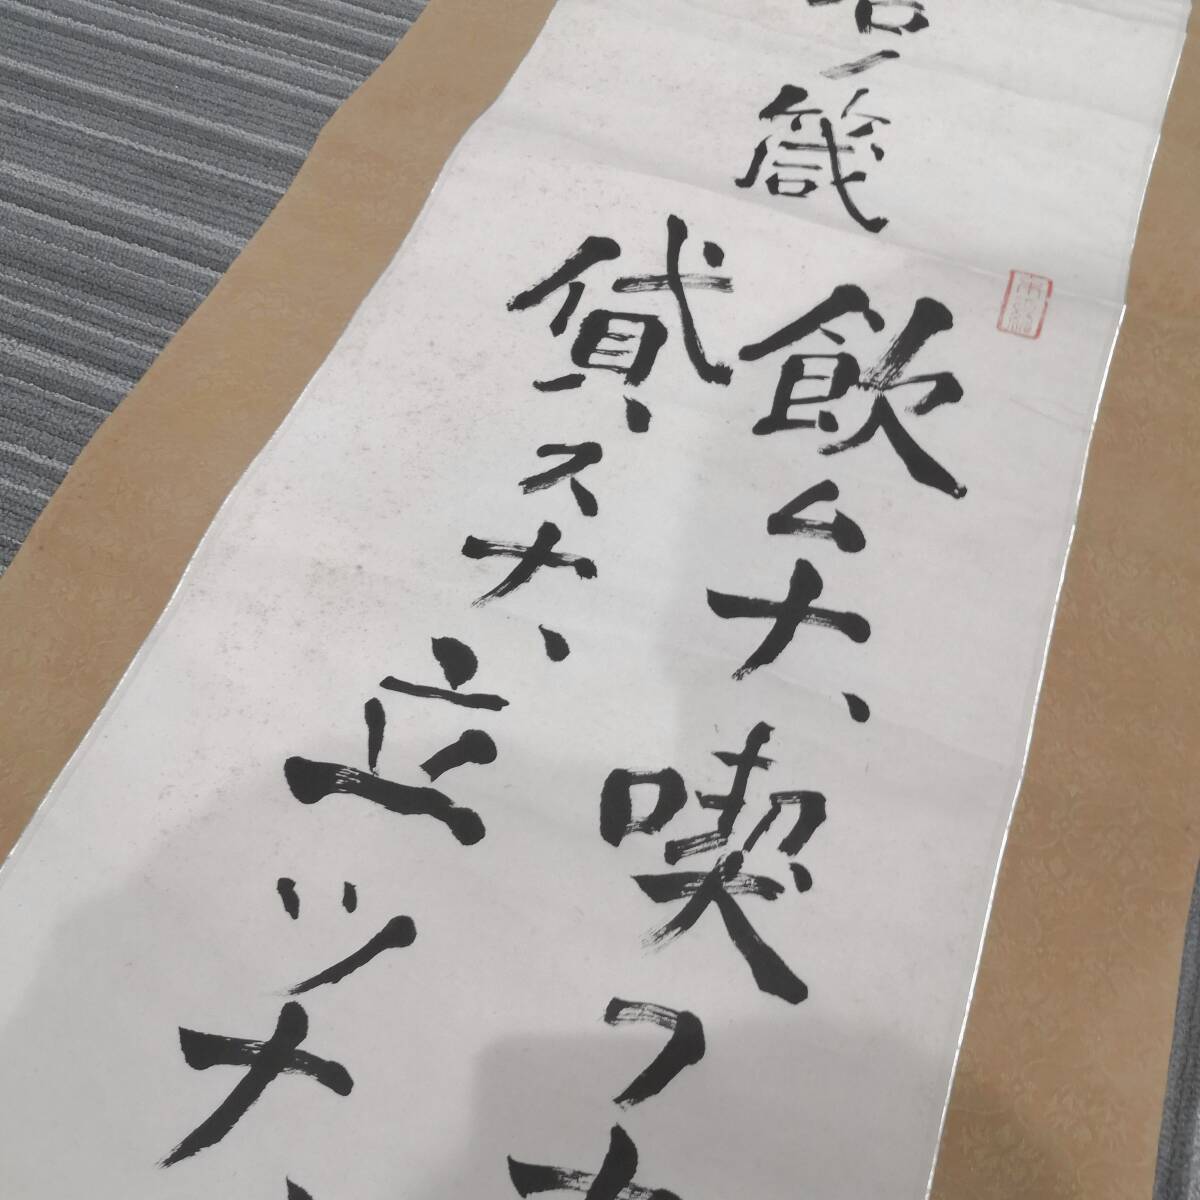 ノ箴
飲ムナ、喫フナ
貸スナ、立ツナ、